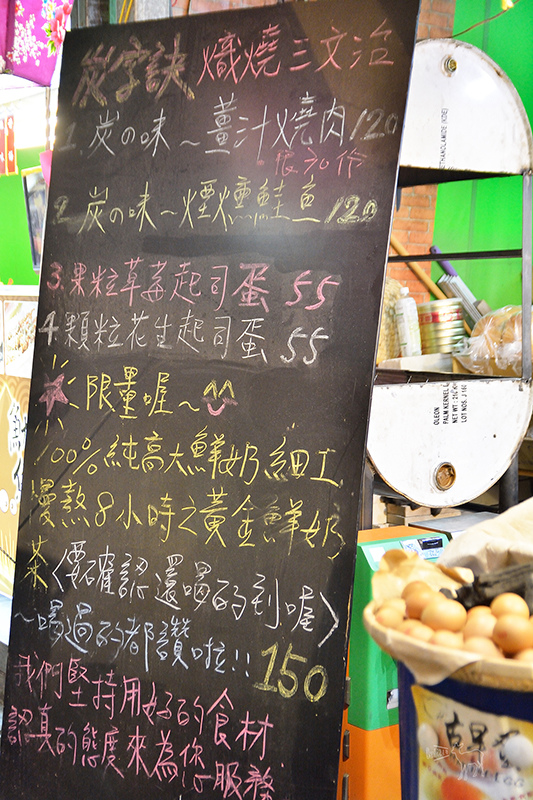 炭字訣 熾燒三文治
1. 炭の味~薑汁燒肉120
限30份
2. 炭の味~煙燻鮭魚120
3. 果粒草莓起司蛋 55
4. 顆粒花生起司蛋 55
限量喔~
100%純高大鮮奶細工
慢熬8小時之黃金鮮奶
茶<要確認還喝的到喔>
~喝過的都讚啦!! 150
我們堅持用好的食材
認真的態度來為您服務
METHANOLAMIDE (KDE)
OLEON
PALM KERNEL
NET WT : 2
LOT NOS. J 16